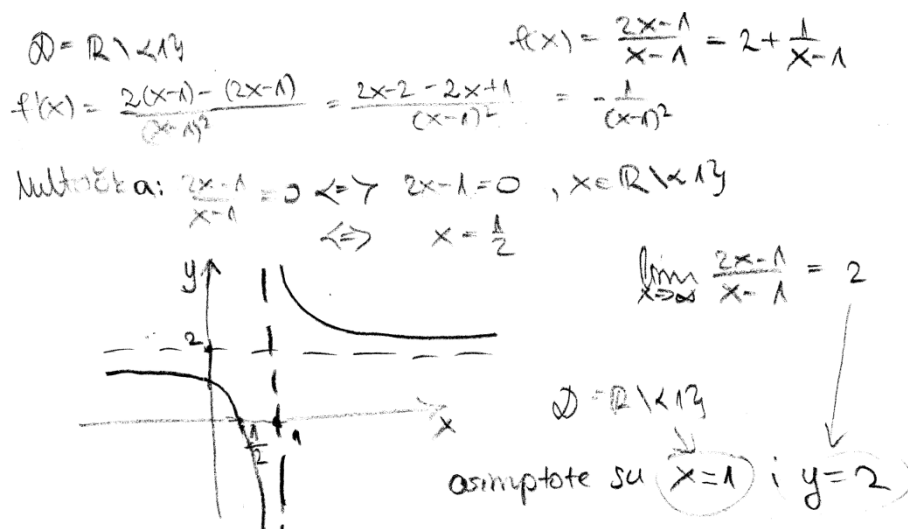 D = R \ {1}
f(x) = \frac{2x-1}{x-1} = 2 + \frac{1}{x-1}
f'(x) = \frac{2(x-1) - (2x-1)}{(x-1)^2} = \frac{2x-2-2x+1}{(x-1)^2} = -\frac{1}{(x-1)^2}
Nultočka: \frac{2x-1}{x-1} = 0 <=> 2x-1=0 , x ∈ R \ {1}
<=> x = \frac{1}{2}
\lim_{x→∞} \frac{2x-1}{x-1} = 2
y
2
\frac{1}{2}
1
x
D = R \ {1}
asimptote su x=1 i y=2